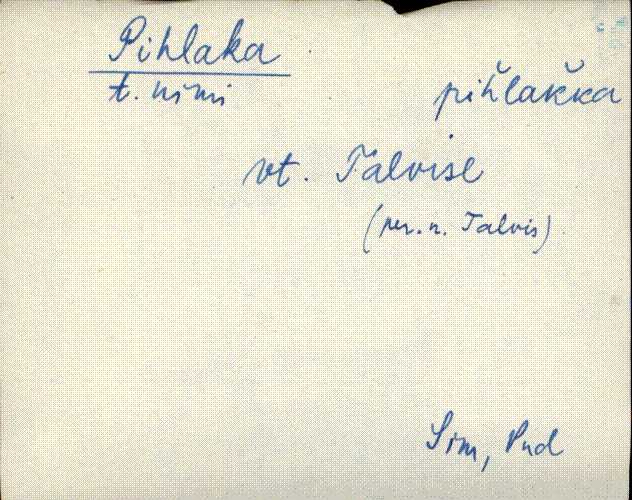 Pihlaka
t. nimi pih̆lak̆ka
vt. Talvise
(per. n. Talvis)
Sim, Pud